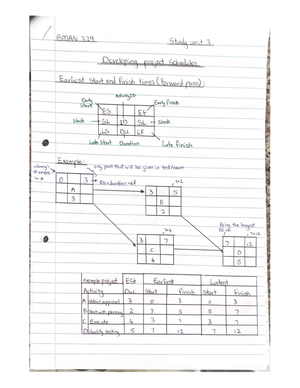 BMAN 329
Study unit 3
Developing project schedules
Earliest start and finish times (forward pass):
Activity ID
Early start
Early finish
ES
EF
Slack
SL
ID
SL
Slack
LS
DU
LF
Late start
Duration
Late finish
Example:
only part that will be given in test/exam
0
3
A
3
ES + duration = EF
3+2
3
5
B
2
3+4
3
7
C
4
Bring the largest
7+5
7
12
D
5
Example project
Est
Earliest
Latest
Activity
Dur
Start
Finish
Start
Finish
A obtain approval
3
0
3
0
3
2
3
5
5
7
C Execute
4
3
7
3
7
D Quality testing
5
7
12
7
12